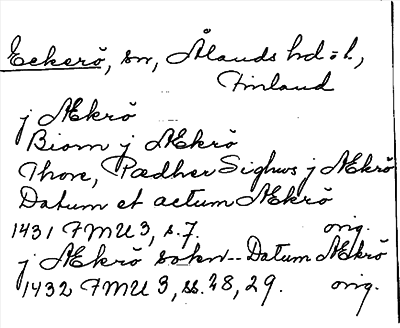 Eckerö, sn, Ålands hd o. l.,
Finland
j Ækrö
Biorn j Ækrö
Thore, Pædher Sighws j Ækrö
Datum et actum Ækrö
1431 FMU 3, s. 7. orig.
j Ækrö sokn -- Datum Ækrö
1432 FMU 3, ss. 28, 29. orig.